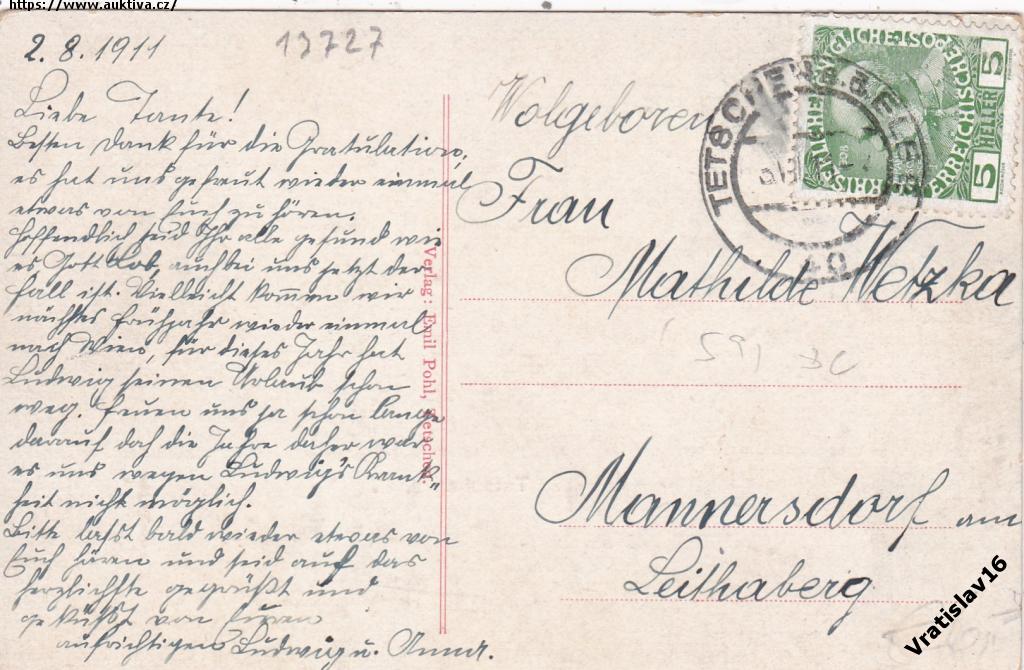 https://www.auktiva.cz/
2. 8. 1911
13727
Liebe Tante!
Besten Dank für die Gratulation,
es hat uns gefreut wieder einmal
etwas von Euch zu hören.
Hoffendlich seid Ihr alle gesund wie
es Gott Lob, auch bei uns jetzt der
Fall ist. Vielleicht kommen wir
nächstes Frühjahr wieder einmal
nach Wien, für dieses Jahr hat
Ludwig seinen Urlaub schon
weg. Freuen uns ja schon lange
darauf doch die Jahre daher war
es uns wegen Ludwig's Krank-
heit nicht möglich.
Bitte lasst bald wieder etwas von
Euch hören und seid auf das
herzlichste gegrüßt und
geküßt von Euren
aufrichtigen Ludwig u. Anna.
Verlag: Emil Pohl, Tetschen.
Wolgeboren
Frau
Mathilde Wetzka
Mannersdorf am
Leithaberg
TETSCHEN a.d. ELBE
40
5 HELLER 5
Vratislav16